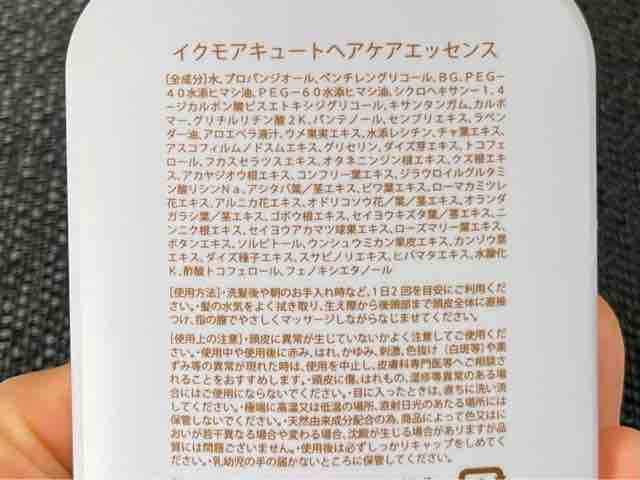 イクモアキュートヘアケアエッセンス
[全成分]水、プロパンジオール、ペンチレングリコール、BG、PEG-
40水添ヒマシ油、PEG-60水添ヒマシ油、シクロヘキサン-1,4
-ジカルボン酸ビスエトキシジグリコール、キサンタンガム、カルボ
マー、グリチルリチン酸2K、パンテノール、センブリエキス、ラベン
ダー油、アロエベラ液汁、ウメ果実エキス、水添レシチン、チャ葉エキス、
アスコフィルムノドスムエキス、グリセリン、ダイズ芽エキス、トコフェ
ロール、フカスセラツスエキス、オタネニンジン根エキス、クズ根エキ
ス、アカヤジオウ根エキス、コンフリー葉エキス、ジラウロイルグルタミ
ン酸リシンNa、アシタバ葉/茎エキス、ビワ葉エキス、ローマカミツレ
花エキス、アルニカ花エキス、オドリコソウ花/葉/茎エキス、オランダ
ガラシ葉/茎エキス、ゴボウ根エキス、セイヨウキズタ葉/茎エキス、ニ
ンニク根エキス、セイヨウアカマツ球果エキス、ローズマリー葉エキス、
ボタンエキス、ソルビトール、ウンシュウミカン果皮エキス、カンゾウ葉
エキス、ダイズ種子エキス、スサビノリエキス、ヒバマタエキス、水酸化
K、酢酸トコフェロール、フェノキシエタノール
[使用方法]・洗髪後や朝のお手入れ時など、1日2回を目安にご利用くだ
さい。・髪の水気をよく拭き取り、生え際から後頭部まで頭皮全体に直接
つけ、指の腹でやさしくマッサージしながらなじませてください。
[使用上の注意]・頭皮に異常が生じていないかよく注意してご使用くだ
さい。・使用中や使用後に赤み、はれ、かゆみ、刺激、色抜け(白斑等)や黒
ずみ等の異常が現れた時は、使用を中止し、皮膚科専門医等へご相談さ
れることをおすすめします。・頭皮に傷、はれもの、湿疹等異常のある場
合にはご使用にならないでください。・目に入ったときは、直ちに洗い流
してください。・極端に高温又は低温の場所、直射日光のあたる場所には
保管しないでください。・天然由来成分配合の為、商品によって色又はに
おいが若干異なる場合や変わる場合、沈殿が生じる場合がありますが品
質には問題ございません。・使用後は必ずしっかりキャップをしめてくだ
さい。・乳幼児の手の届かないところに保管してください。